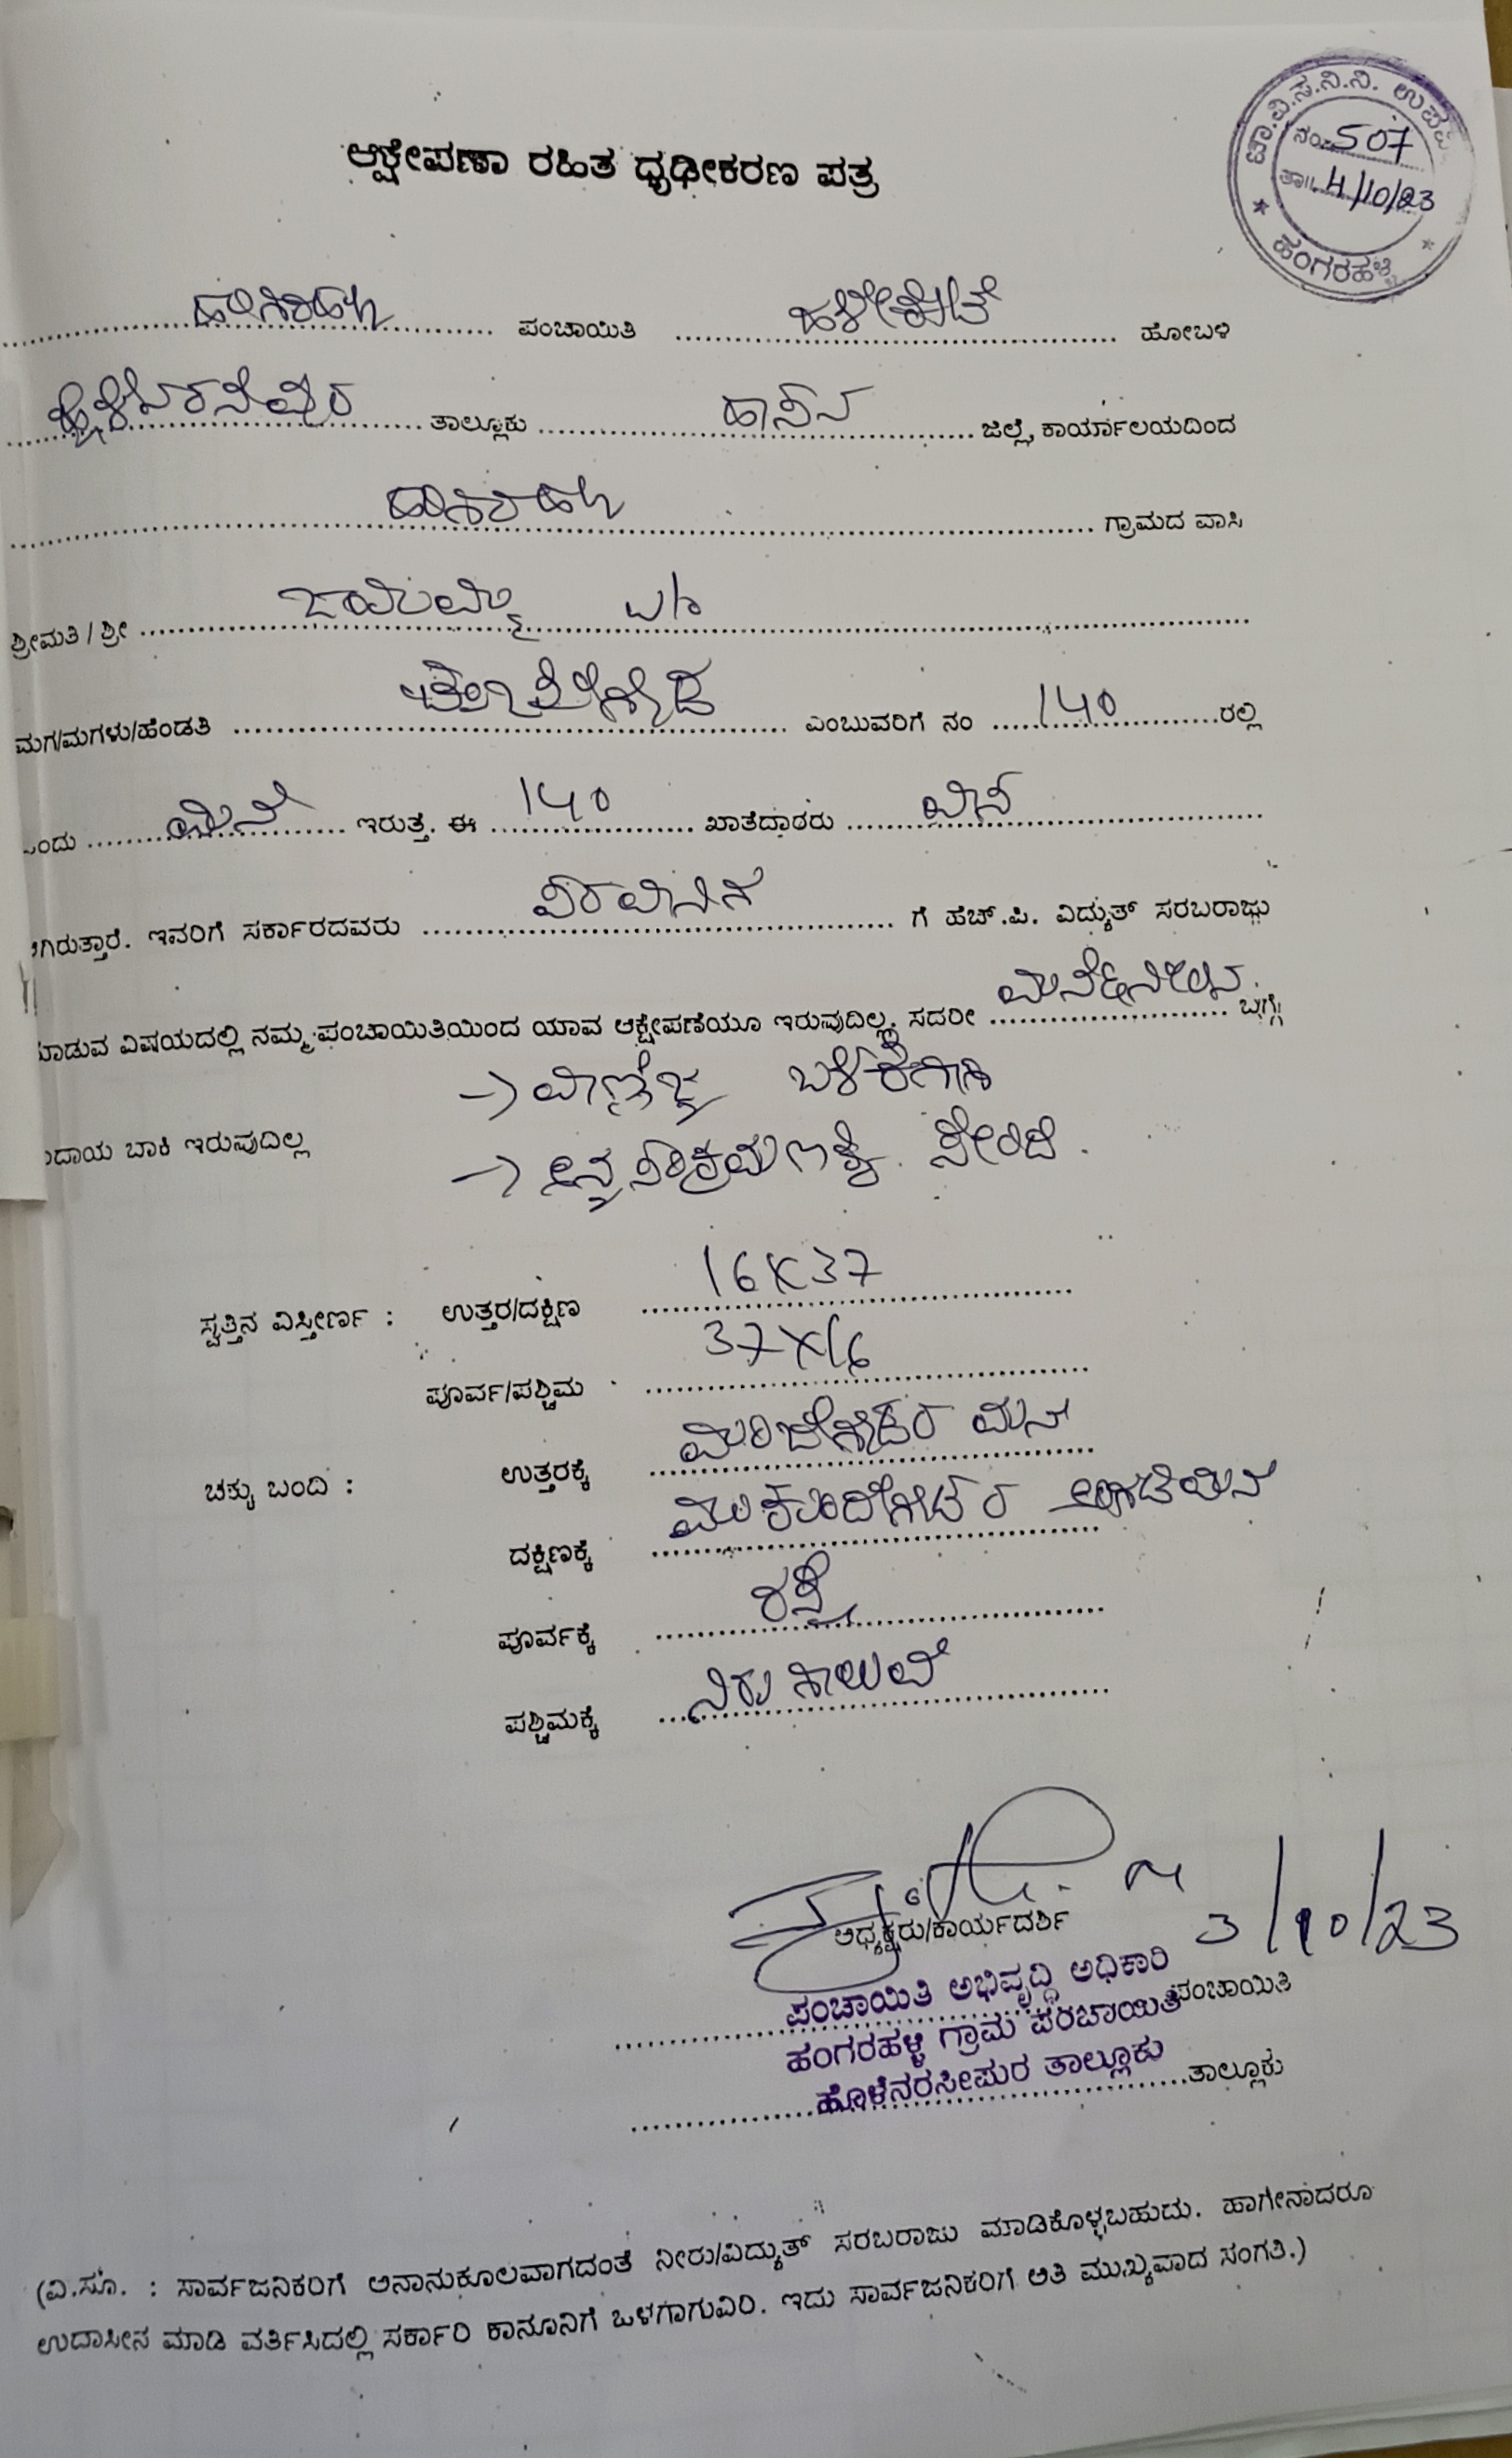 ಚಾ.ವಿ.ಸ.ನಿ.ನಿ. ಉಪವಿ
ನಂ. 507
ತಾ॥ 4/10/23
ಹಂಗರಹಳ್ಳಿ
ಆಕ್ಷೇಪಣಾ ರಹಿತ ಧೃಢೀಕರಣ ಪತ್ರ
ಹಂಗರಹಳ್ಳಿ ಪಂಚಾಯಿತಿ ಹಳೇಕೋಟೆ ಹೋಬಳಿ
ತಾಲ್ಲೂಕು ಹಾಸನ ಜಿಲ್ಲೆ, ಕಾರ್ಯಾಲಯದಿಂದ
ಹಂಗರಹಳ್ಳಿ ಗ್ರಾಮದ ವಾಸಿ
ಶ್ರೀಮತಿ / ಶ್ರೀ ಜಯಮ್ಮ
ಮಗ/ಮಗಳು/ಹೆಂಡತಿ ಎಂಬುವರಿಗೆ ನಂ 140 ರಲ್ಲಿ
ಒಂದು ಮನೆ ಇರುತ್ತೆ. ಈ 140 ಖಾತೆದಾರರು
ಗಿರುತ್ತಾರೆ. ಇವರಿಗೆ ಸರ್ಕಾರದವರು ಗೆ ಹೆಚ್.ಪಿ. ವಿದ್ಯುತ್ ಸರಬರಾಜು
ಮಾಡುವ ವಿಷಯದಲ್ಲಿ ನಮ್ಮ ಪಂಚಾಯಿತಿಯಿಂದ ಯಾವ ಆಕ್ಷೇಪಣೆಯೂ ಇರುವುದಿಲ್ಲ. ಸದರೀ ಬಗ್ಗೆ
→ ವಾಣಿಜ್ಯ ಬಳಕೆಗಾಗಿ
ದಾಯ ಬಾಕಿ ಇರುವುದಿಲ್ಲ
→ ಸೇರಿದೆ.
ಸ್ವತ್ತಿನ ವಿಸ್ತೀರ್ಣ : ಉತ್ತರ/ದಕ್ಷಿಣ 16X37
ಪೂರ್ವ/ಪಶ್ಚಿಮ 37X16
ಚಕ್ಕು ಬಂದಿ : ಉತ್ತರಕ್ಕೆ ಮಂಜೇಗೌಡರ ಮನೆ
ದಕ್ಷಿಣಕ್ಕೆ
ಪೂರ್ವಕ್ಕೆ ರಸ್ತೆ
ಪಶ್ಚಿಮಕ್ಕೆ ನೀರು ಕಾಲುವೆ
3/10/23
ಅಧ್ಯಕ್ಷರು/ಕಾರ್ಯದರ್ಶಿ
ಪಂಚಾಯಿತಿ ಅಭಿವೃದ್ಧಿ ಅಧಿಕಾರಿ
ಪಂಚಾಯಿತಿ
ಹಂಗರಹಳ್ಳಿ ಗ್ರಾಮ ಪಂಚಾಯಿತಿ
ಹೊಳೆನರಸೀಪುರ ತಾಲ್ಲೂಕು
ತಾಲ್ಲೂಕು
(ವಿ.ಸೂ. : ಸಾರ್ವಜನಿಕರಿಗೆ ಅನಾನುಕೂಲವಾಗದಂತೆ ನೀರು/ವಿದ್ಯುತ್ ಸರಬರಾಜು ಮಾಡಿಕೊಳ್ಳಬಹುದು. ಹಾಗೇನಾದರೂ
ಉದಾಸೀನ ಮಾಡಿ ವರ್ತಿಸಿದಲ್ಲಿ ಸರ್ಕಾರಿ ಕಾನೂನಿಗೆ ಒಳಗಾಗುವಿರಿ. ಇದು ಸಾರ್ವಜನಿಕರಿಗೆ ಅತಿ ಮುಖ್ಯವಾದ ಸಂಗತಿ.)